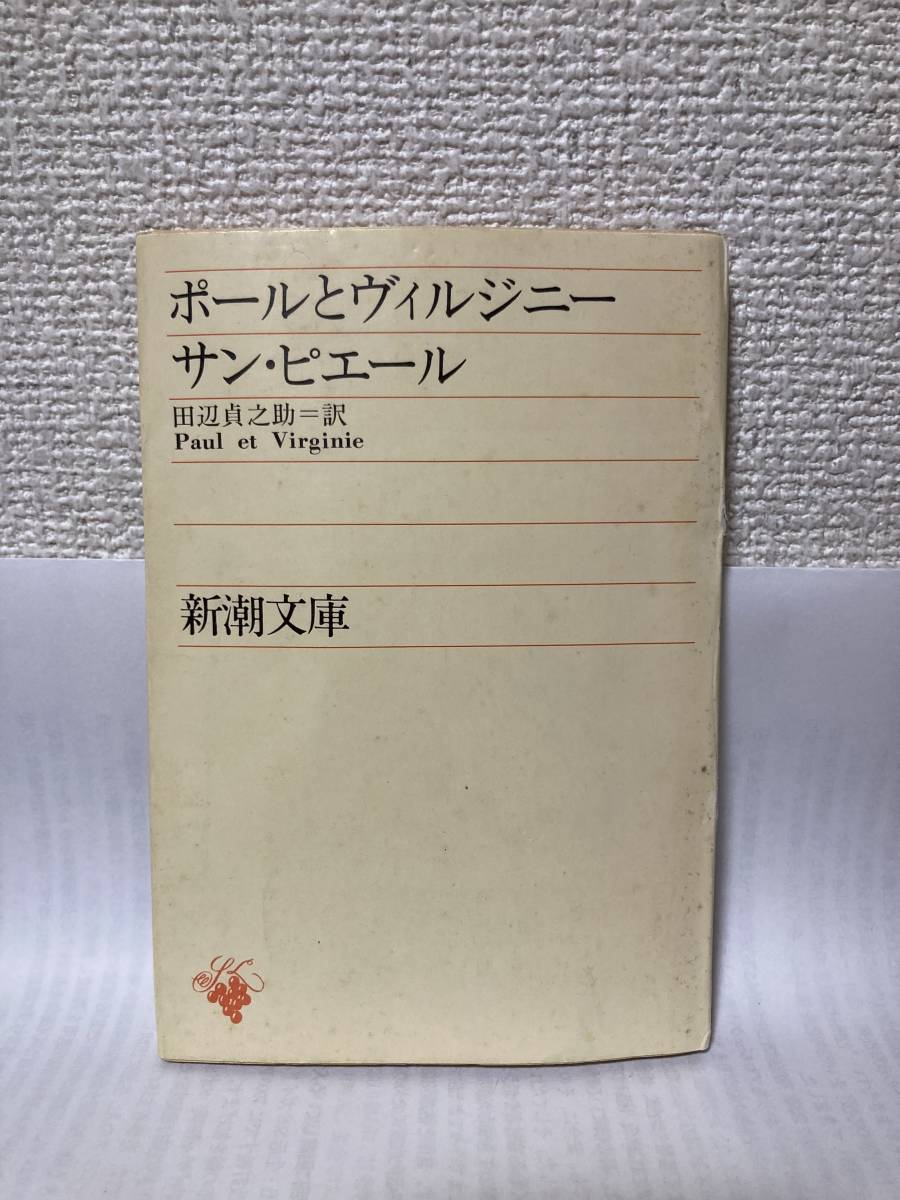 ポールとヴィルジニー
サン・ピエール
田辺貞之助＝訳
Paul et Virginie
新潮文庫